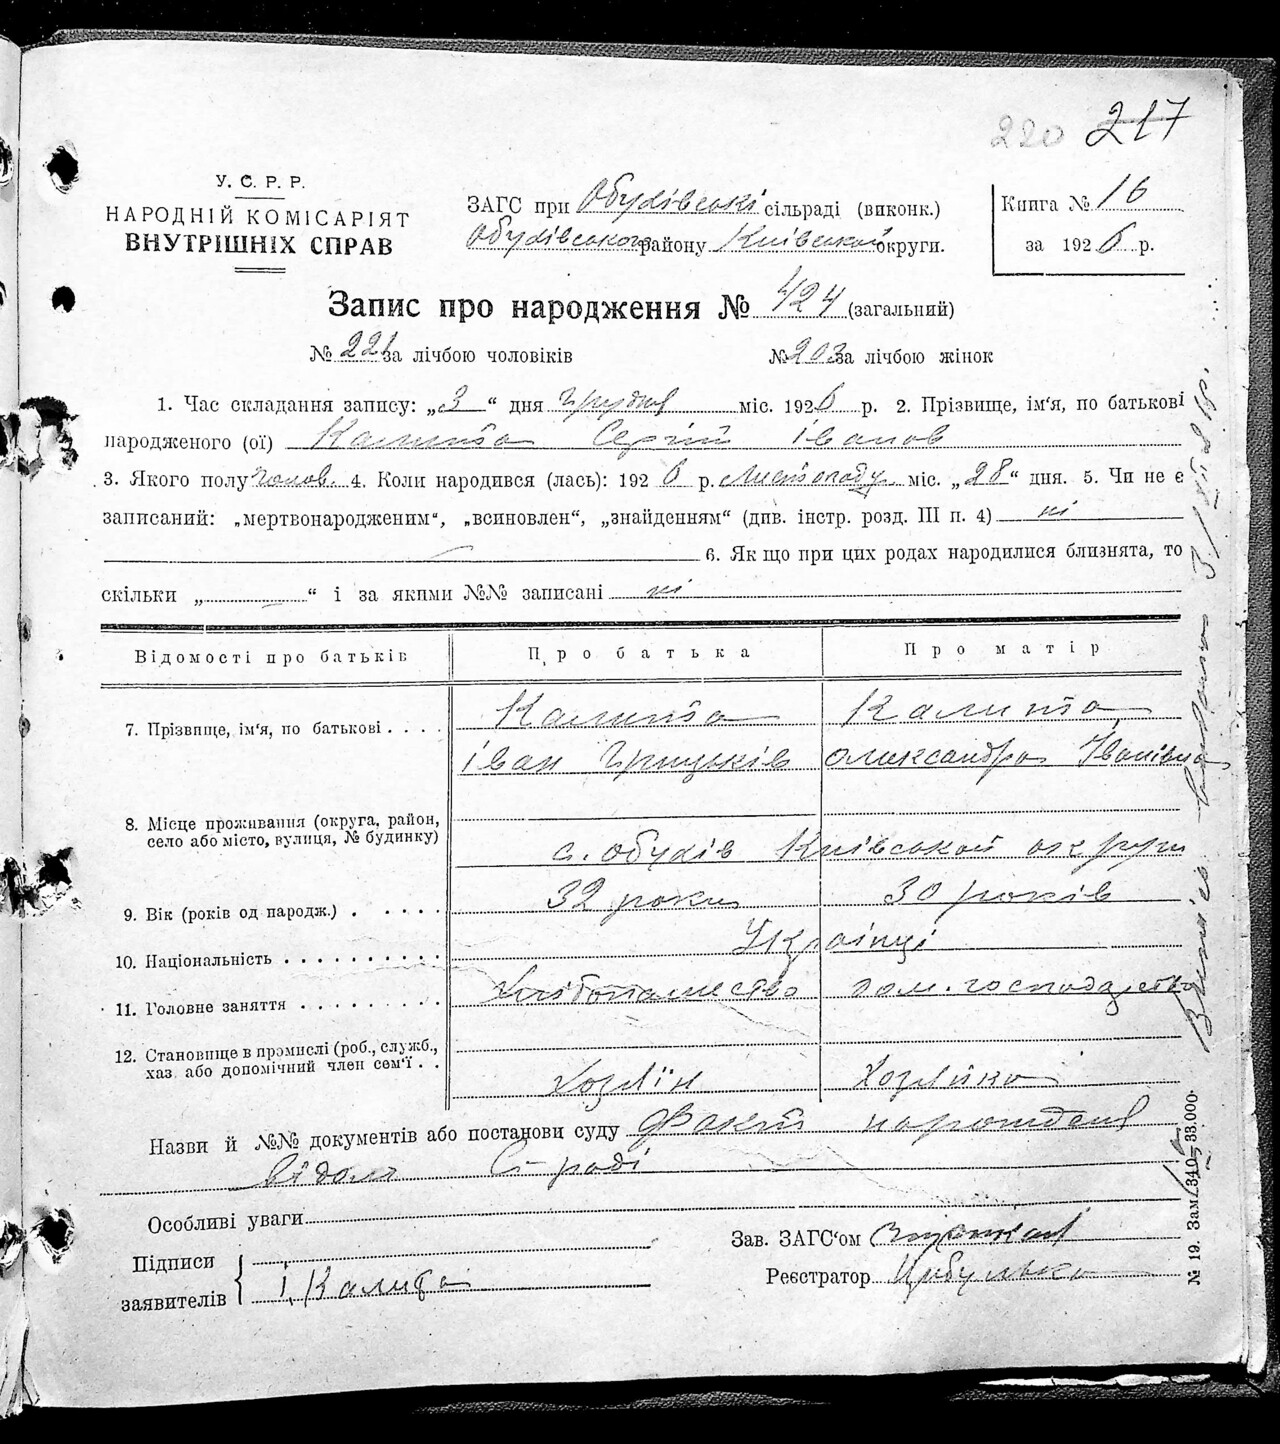 220 217
У. С. Р. Р.
НАРОДНІЙ КОМІСАРІЯТ
ВНУТРІШНІХ СПРАВ
ЗАГС при Обухівські сільраді (виконк.)
Обухівського району Київської округи.
Книга № 16
за 1926 р.
Запис про народження № 424 (загальний)
№ 221 за лічбою чоловіків № 203 за лічбою жінок
1. Час складання запису: „3“ дня Грудня міс. 1926 р. 2. Прізвище, ім'я, по батькові
народженого (ої) Калита Сергій Іванов
3. Якого полу чолов. 4. Коли народився (лась): 1926 р. Листопаду міс. „28“ дня. 5. Чи не є
записаний: „мертвонародженим“, „всиновлен“, „знайденням“ (див. інстр. розд. III п. 4) ні
6. Як що при цих родах народилися близнята, то
скільки „ “ і за якими №№ записані ні
Відомості про батьків Про батька Про матір
7. Прізвище, ім'я, по батькові . . . . Калита Калита
Іван Грицьків Олександра Іванівна
8. Місце проживання (округа, район,
село або місто, вулиця, № будинку) с. Обухів Київської округи
9. Вік (років од народж.) . . . . . 32 роки 30 років
10. Національність . . . . . . . . . . Українці
11. Головне заняття . . . . . . . . Хліборобство дом. господарство
12. Становище в промислі (роб., служб.,
хаз. або допомічний член сем'ї . . Хозяїн Хозяйка
Назви й №№ документів або постанови суду Факт народження
відом С-раді
Особливі уваги
Підписи
заявителів І. Калита
Зав. ЗАГС'ом
Реєстратор Цибулько
№ 19. Зам. 340—33.000.